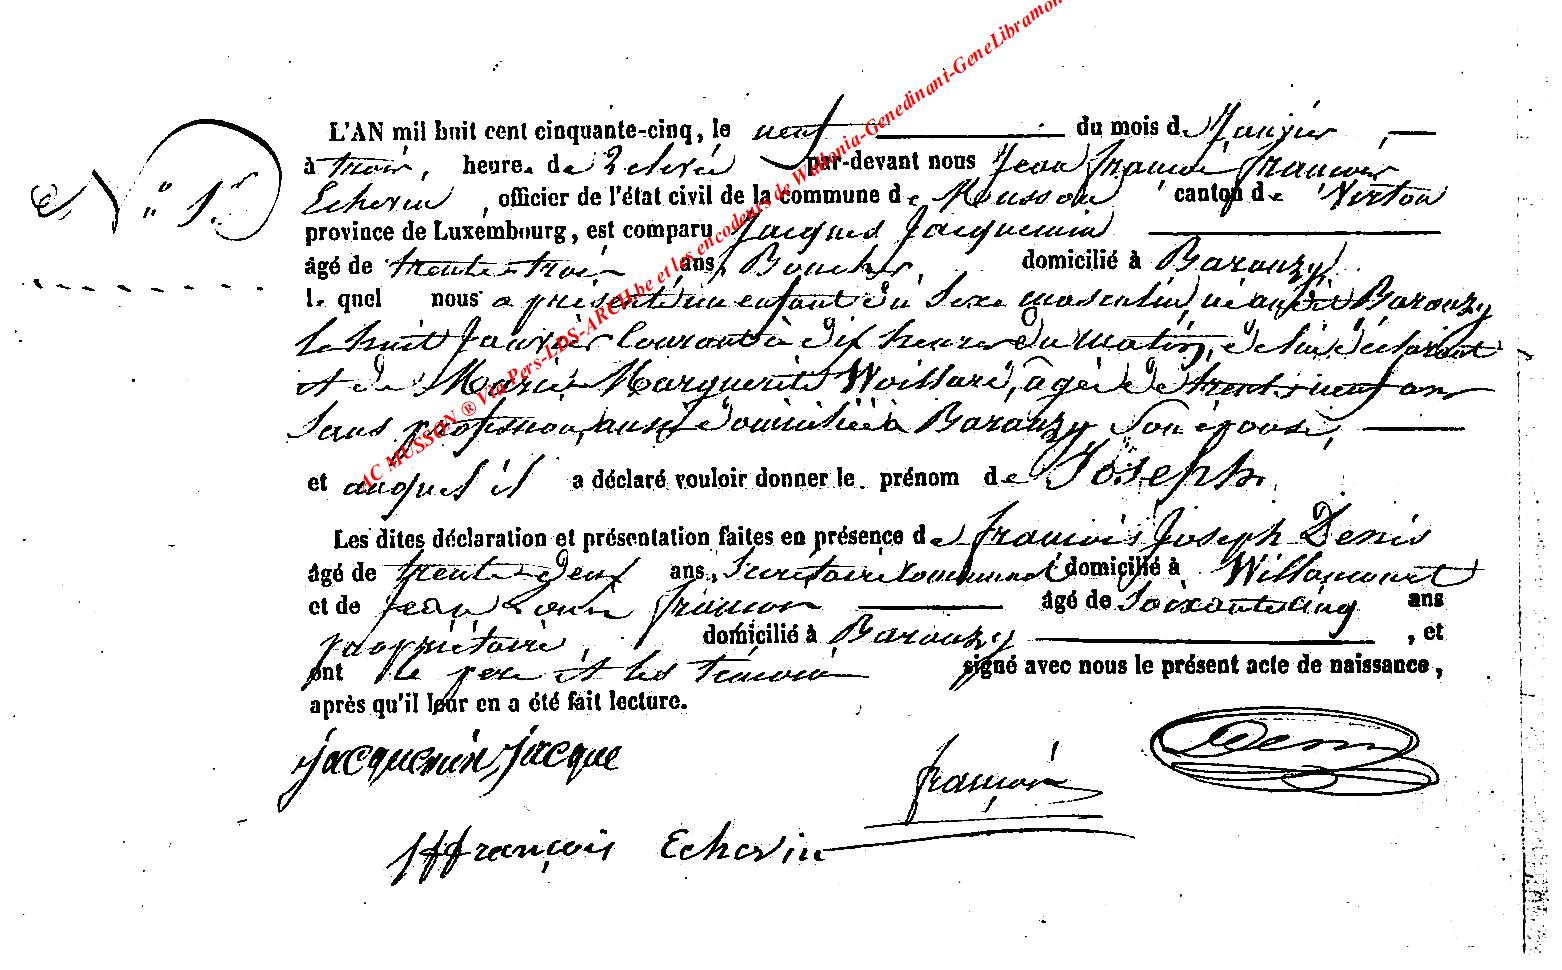 AC MUSSON ® Via Pers-LDS-ARCH.be et les encodeurs de Wallonia-Genedinant-GeneLibramon
N° 1er
L'AN mil huit cent cinquante-cinq, le neuf du mois de Janvier,
à trois heure. de relevée par-devant nous Jean françois françois
Echevin, officier de l'état civil de la commune de Musson canton de Virton
province de Luxembourg, est comparu Jacques Jacquemin
âgé de trente-trois ans, Boucher, domicilié à Baranzy
lequel nous a présenté un enfant du sexe masculin, né audit Baranzy
le huit Janvier courant à dix heures du matin, de lui déclarant
et de Marie Marguerite Woillard, âgée de trente neuf ans
sans profession, aussi domiciliée à Baranzy son épouse,
et auquel il a déclaré vouloir donner le prénom de Joseph.
Les dites déclaration et présentation faites en présence de françois Joseph Denis
âgé de trente deux ans, Secrétaire communal domicilié à Willancourt
et de Jean Louis françois âgé de Soixante cinq ans
propriétaire, domicilié à Baranzy, et
ont le père et les témoins signé avec nous le présent acte de naissance,
après qu'il leur en a été fait lecture.
jacquemin, jacque
françois
Denis
Jffrançois Echevin